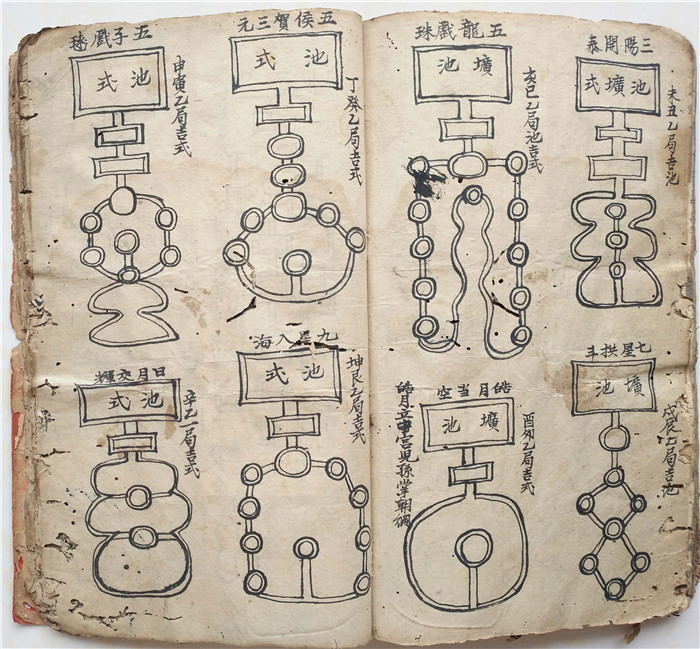 三陽開泰
池壙式
未丑乙局吉池
五龍戲珠
壙池
亥巳乙局池吉式
七星拱斗
壙池
戊辰乙局吉池
皓月當空
壙池
酉夘乙局吉式
皓月立中宮兒孫掌朝綱
五侯賀三元
池式
丁癸乙局吉式
五子戲毬
池式
申寅乙局吉式
九星入海
池式
坤艮乙局吉式
日月交輝
池式
辛乙一局吉式